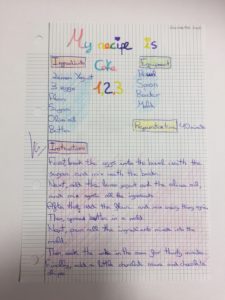 My recipe Is
Cake
1,2,3
Ingredients
Lemon Yogurt
3 eggs
Flour
Sugar
Olive oil
Butter
Equipment
Bowl
Spoon
Beater
Mold
40 minutes
Instructions
First, beat the eggs into the bowl with the
sugar and mix with the beater.
Next, add the lemon yogurt and the olive oil,
and mix again all the ingredients.
After that, add the flour and mix every thing again.
Then, spread butter in a mold.
Next, pour all the ingredients inside into the
mold.
Then, cook the cake in the oven for thirty minutes.
Finally, add a little chocolate sauce and chocolate
chips.